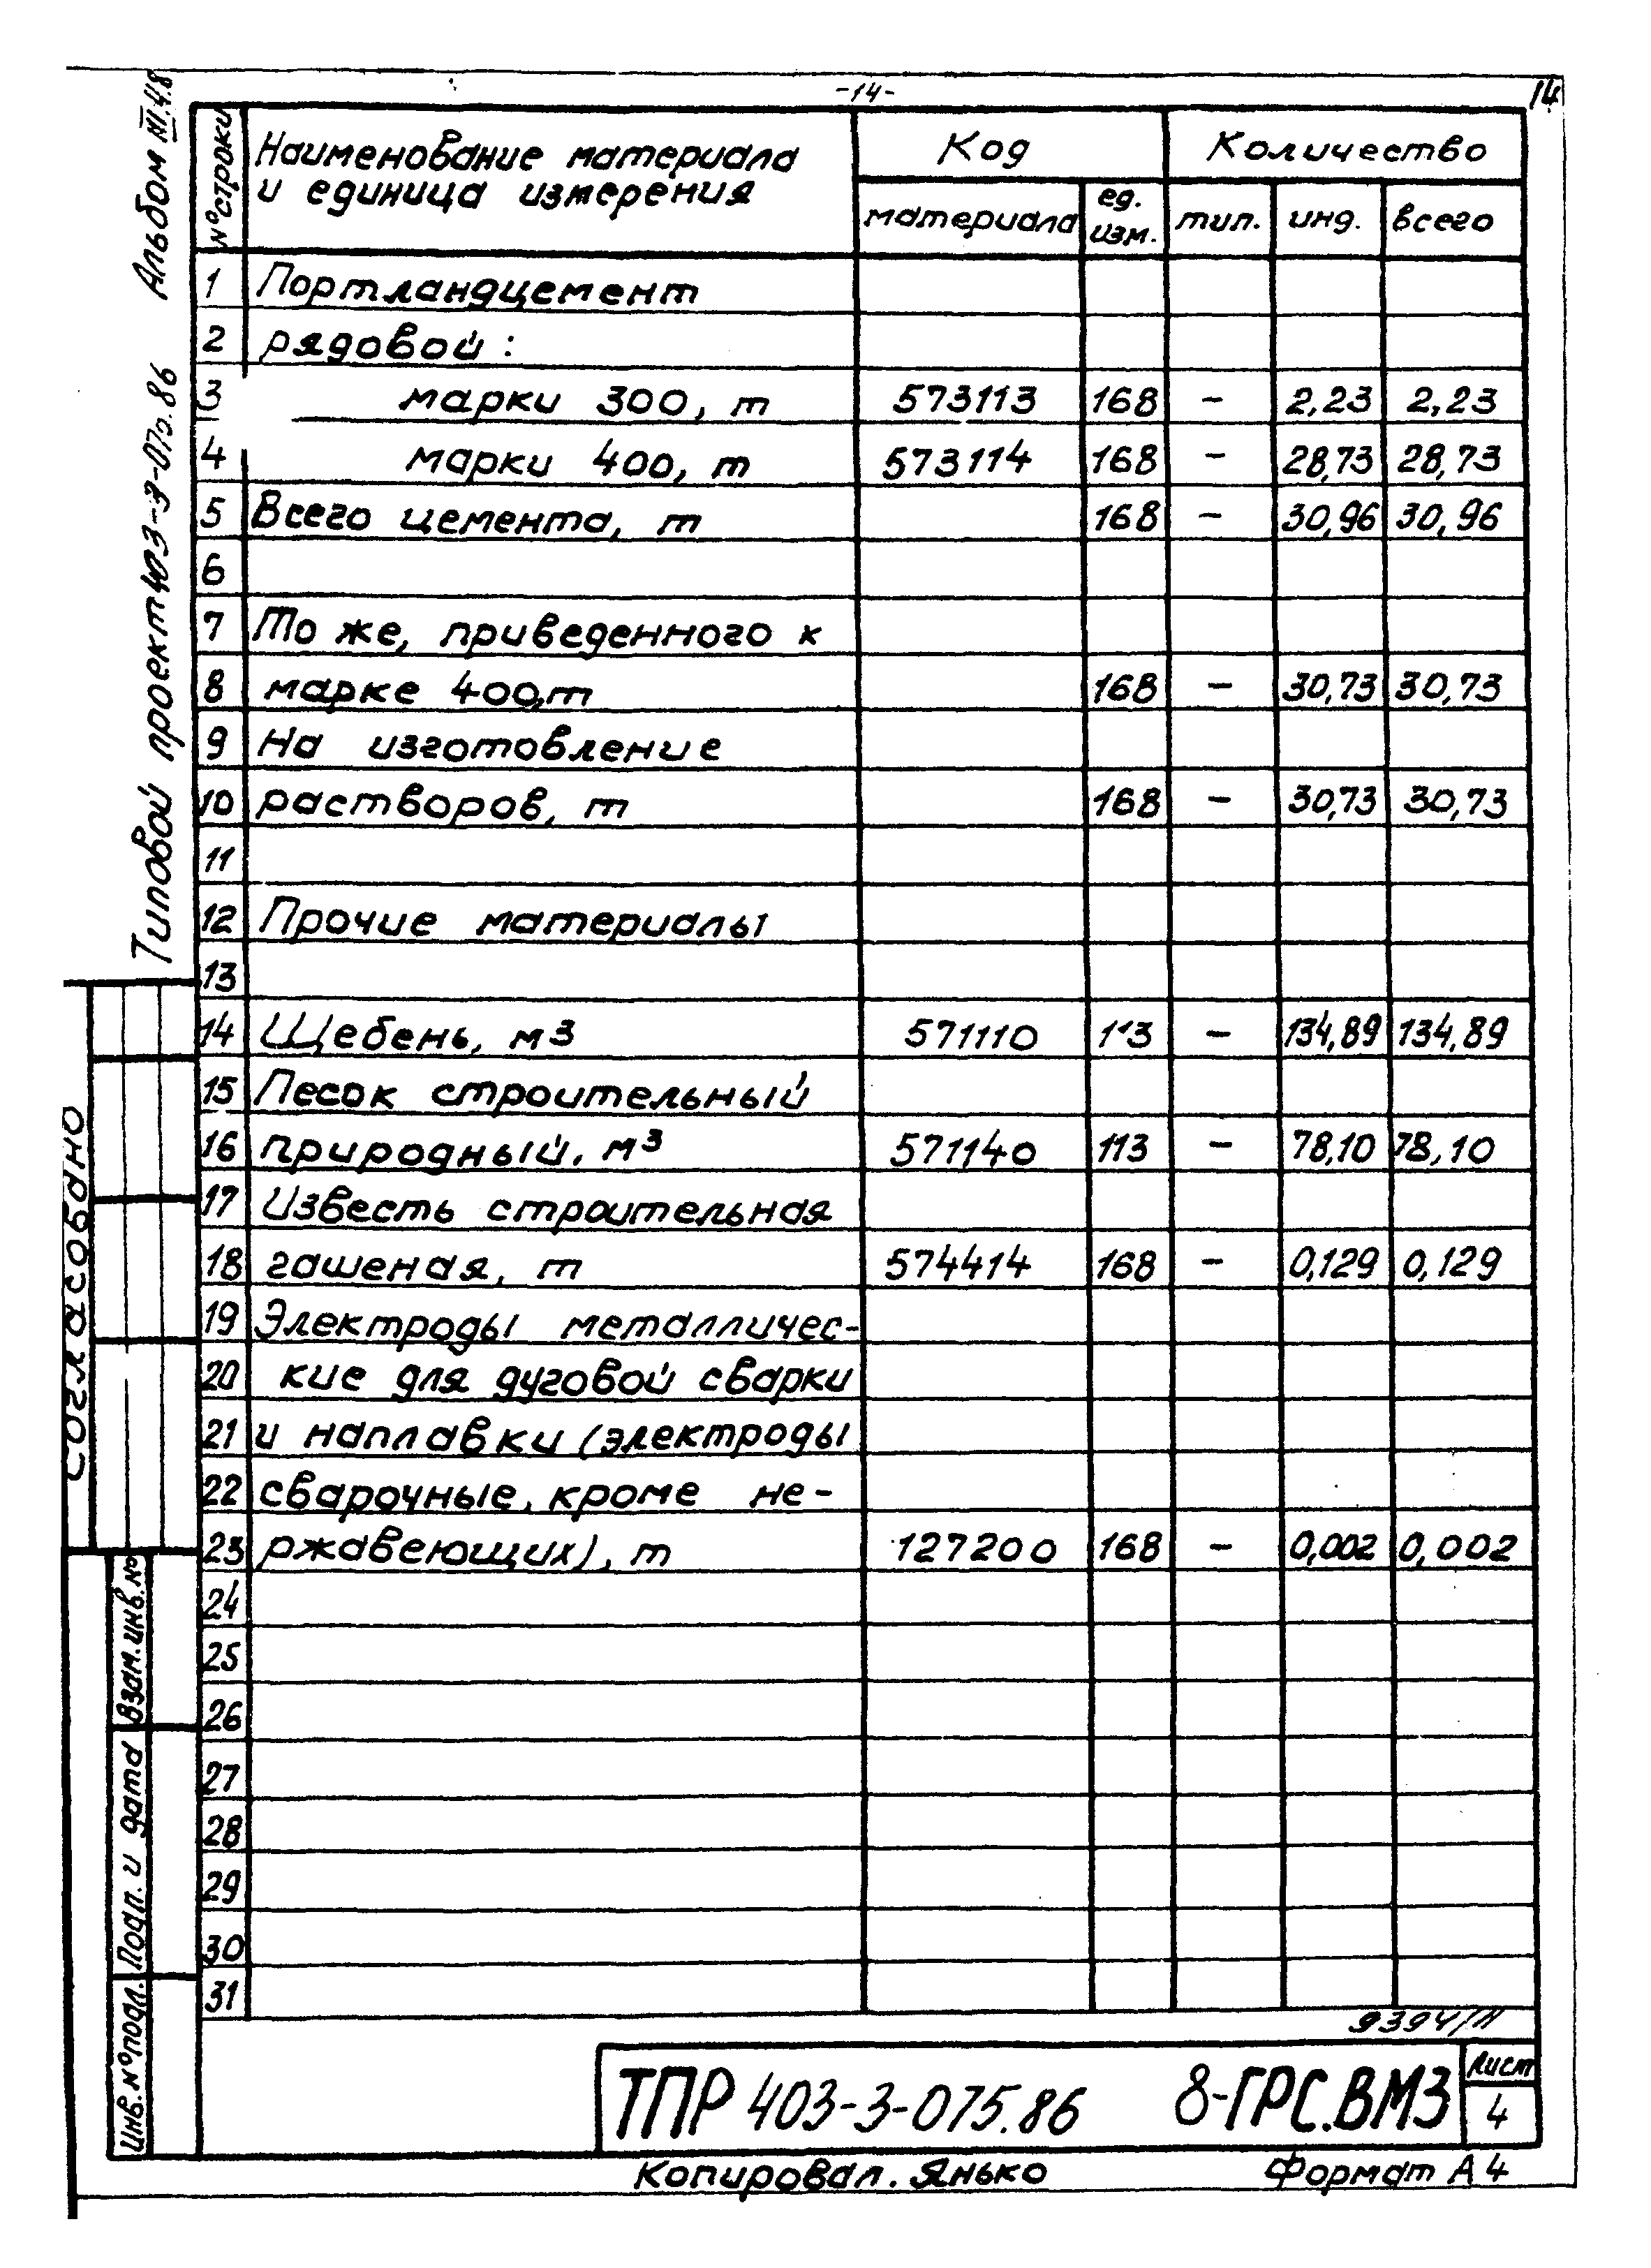 -14-
14
Альбом III.4.8
Типовой проект 403-3-075.86
№ строки
Наименование материала
и единица измерения
Код
Количество
материала
ед.
изм.
тип.
инд.
всего
1 Портландцемент
2 рядовой:
3 марки 300, т 573113 168 - 2,23 2,23
4 марки 400, т 573114 168 - 28,73 28,73
5 Всего цемента, т 168 - 30,96 30,96
6
7 То же, приведенного к
8 марке 400,т 168 - 30,73 30,73
9 На изготовление
10 растворов, т 168 - 30,73 30,73
11
12 Прочие материалы
13
14 Щебень, м3 571110 113 - 134,89 134,89
15 Песок строительный
16 природный, м³ 571140 113 - 78,10 78,10
17 Известь строительная
18 гашеная, т 574414 168 - 0,129 0,129
19 Электроды металличес-
20 кие для дуговой сварки
21 и наплавки (электроды
22 сварочные, кроме не-
23 ржавеющих), т 127200 168 - 0,002 0,002
24
25
26
27
28
29
30
31
Согласовано
Взам. инв. №
Подп. и дата
Инв. № подл.
9394/11
ТПР 403-3-075.86 8-ГРС.ВМ3
Лист
4
Копировал. Янько
Формат А4